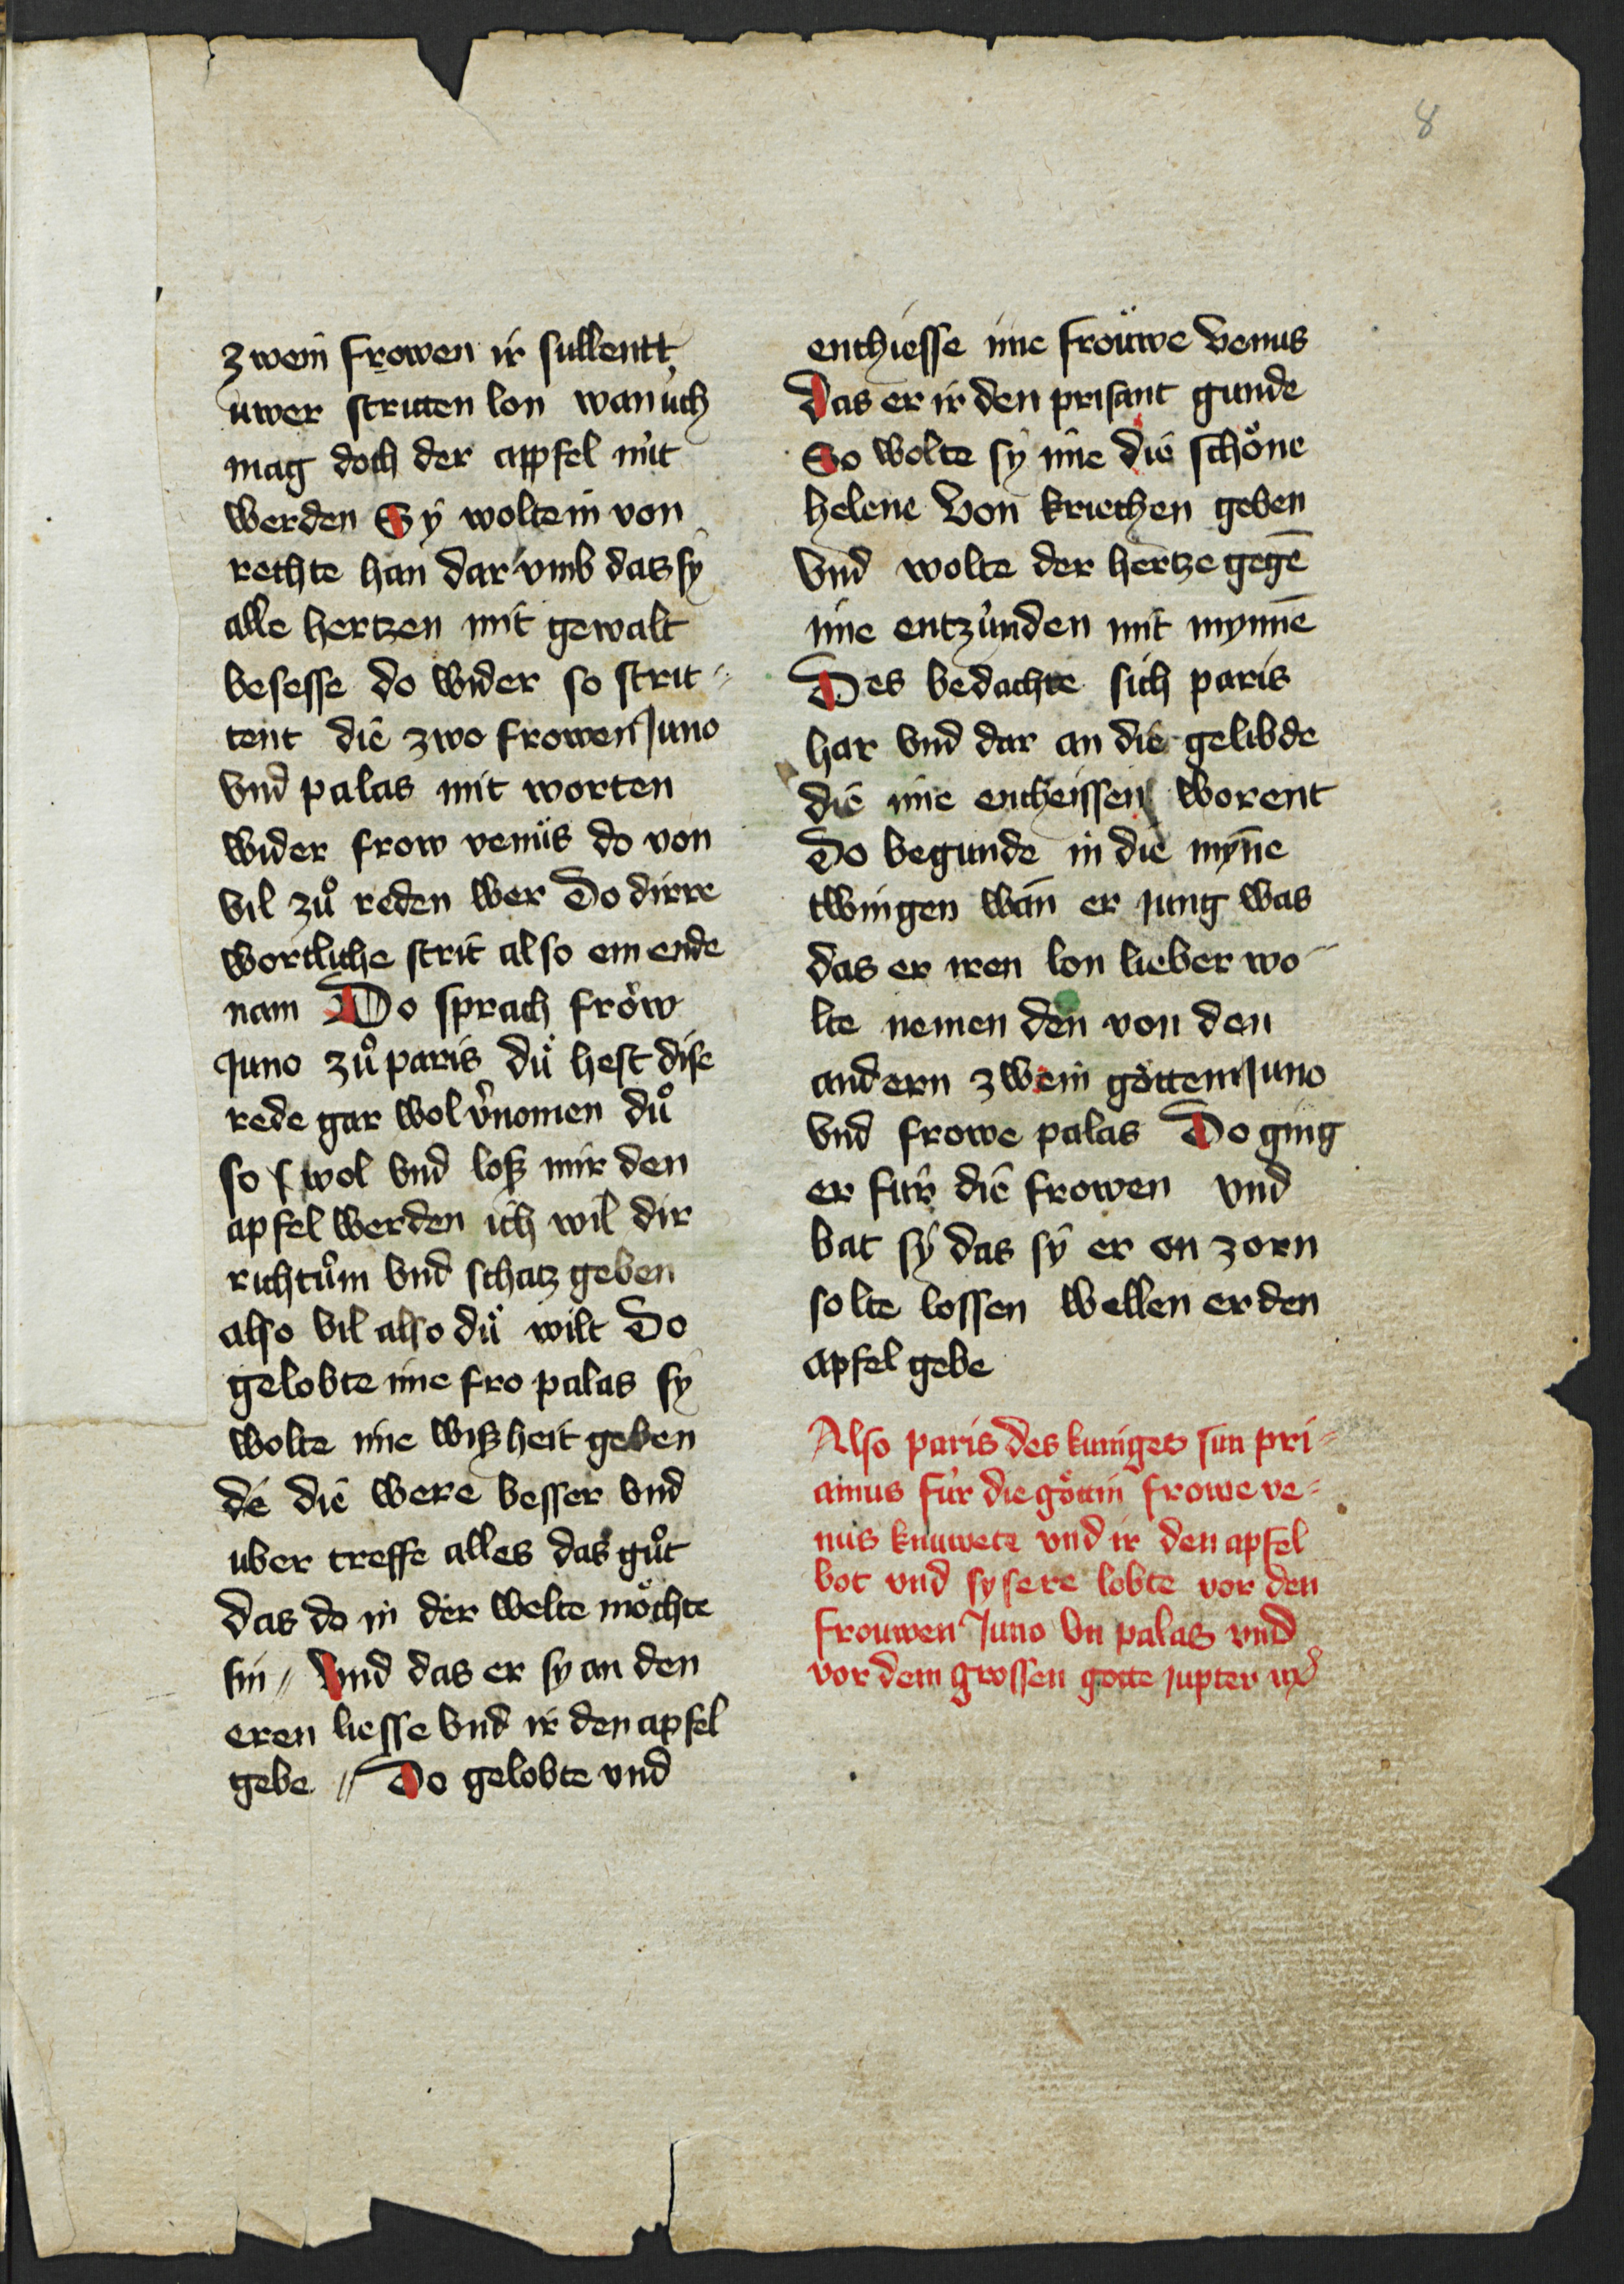 8
zwein frowen ir sullentt
uwer stritten lon wan úch
mag doch der appfel nút
werden Sy wolte in von
rechte han dar vmb das sy
alle hertzen mit gewalt
besesse do wider so strit=
tent die zwo frowen Juno
vnd palas mit worten
wider frow venus do von
vil zů reden wer Do dirre
wortliche strit also ein ende
nam Do sprach frow
Juno zů paris du hest dise
rede gar wol v̓nomen dů
so wol vnd losz mir den
apfel werden ich wil dir
richtům vnd schatz geben
also vil also du wilt Do
gelobte ime fro palas sy
wolte ime wiszheit geben
de die were besser vnd
uber treffe alles das gůt
das do in der welte möchte
sin // Vnd das er sy an den
eren liesse vnd ir den apfel
gebe // Do gelobte vnd
enthiesse ime frouwe venus
Das er ir den prisant gunde
So wolte sy ime die schöne
helene von kriechen geben
vnd wolte der hertze gegē
ime entzúnden mit mynnē
Des bedachte sich paris
har vnd dar an die gelibde
die ime entheissen worent
Do begunde in die myn̄e
twingen wan̄ er jung was
das er iren lon lieber wo-
lte nemen den von den
andern zwein göttenn Juno
vnd frowe palas Do ging
er fur die frowen vnd
bat sy das sy er on zorn
solte lossen wellen er den
apfel gebe
Also paris des kuniges sun pri=
amus fúr die göttin frowe ve=
nus knuwete vnd ir den apfel
bot vnd sy sere lobte vor den
frouwen Juno vn palas vnd
vor dem grossen gotte jupter